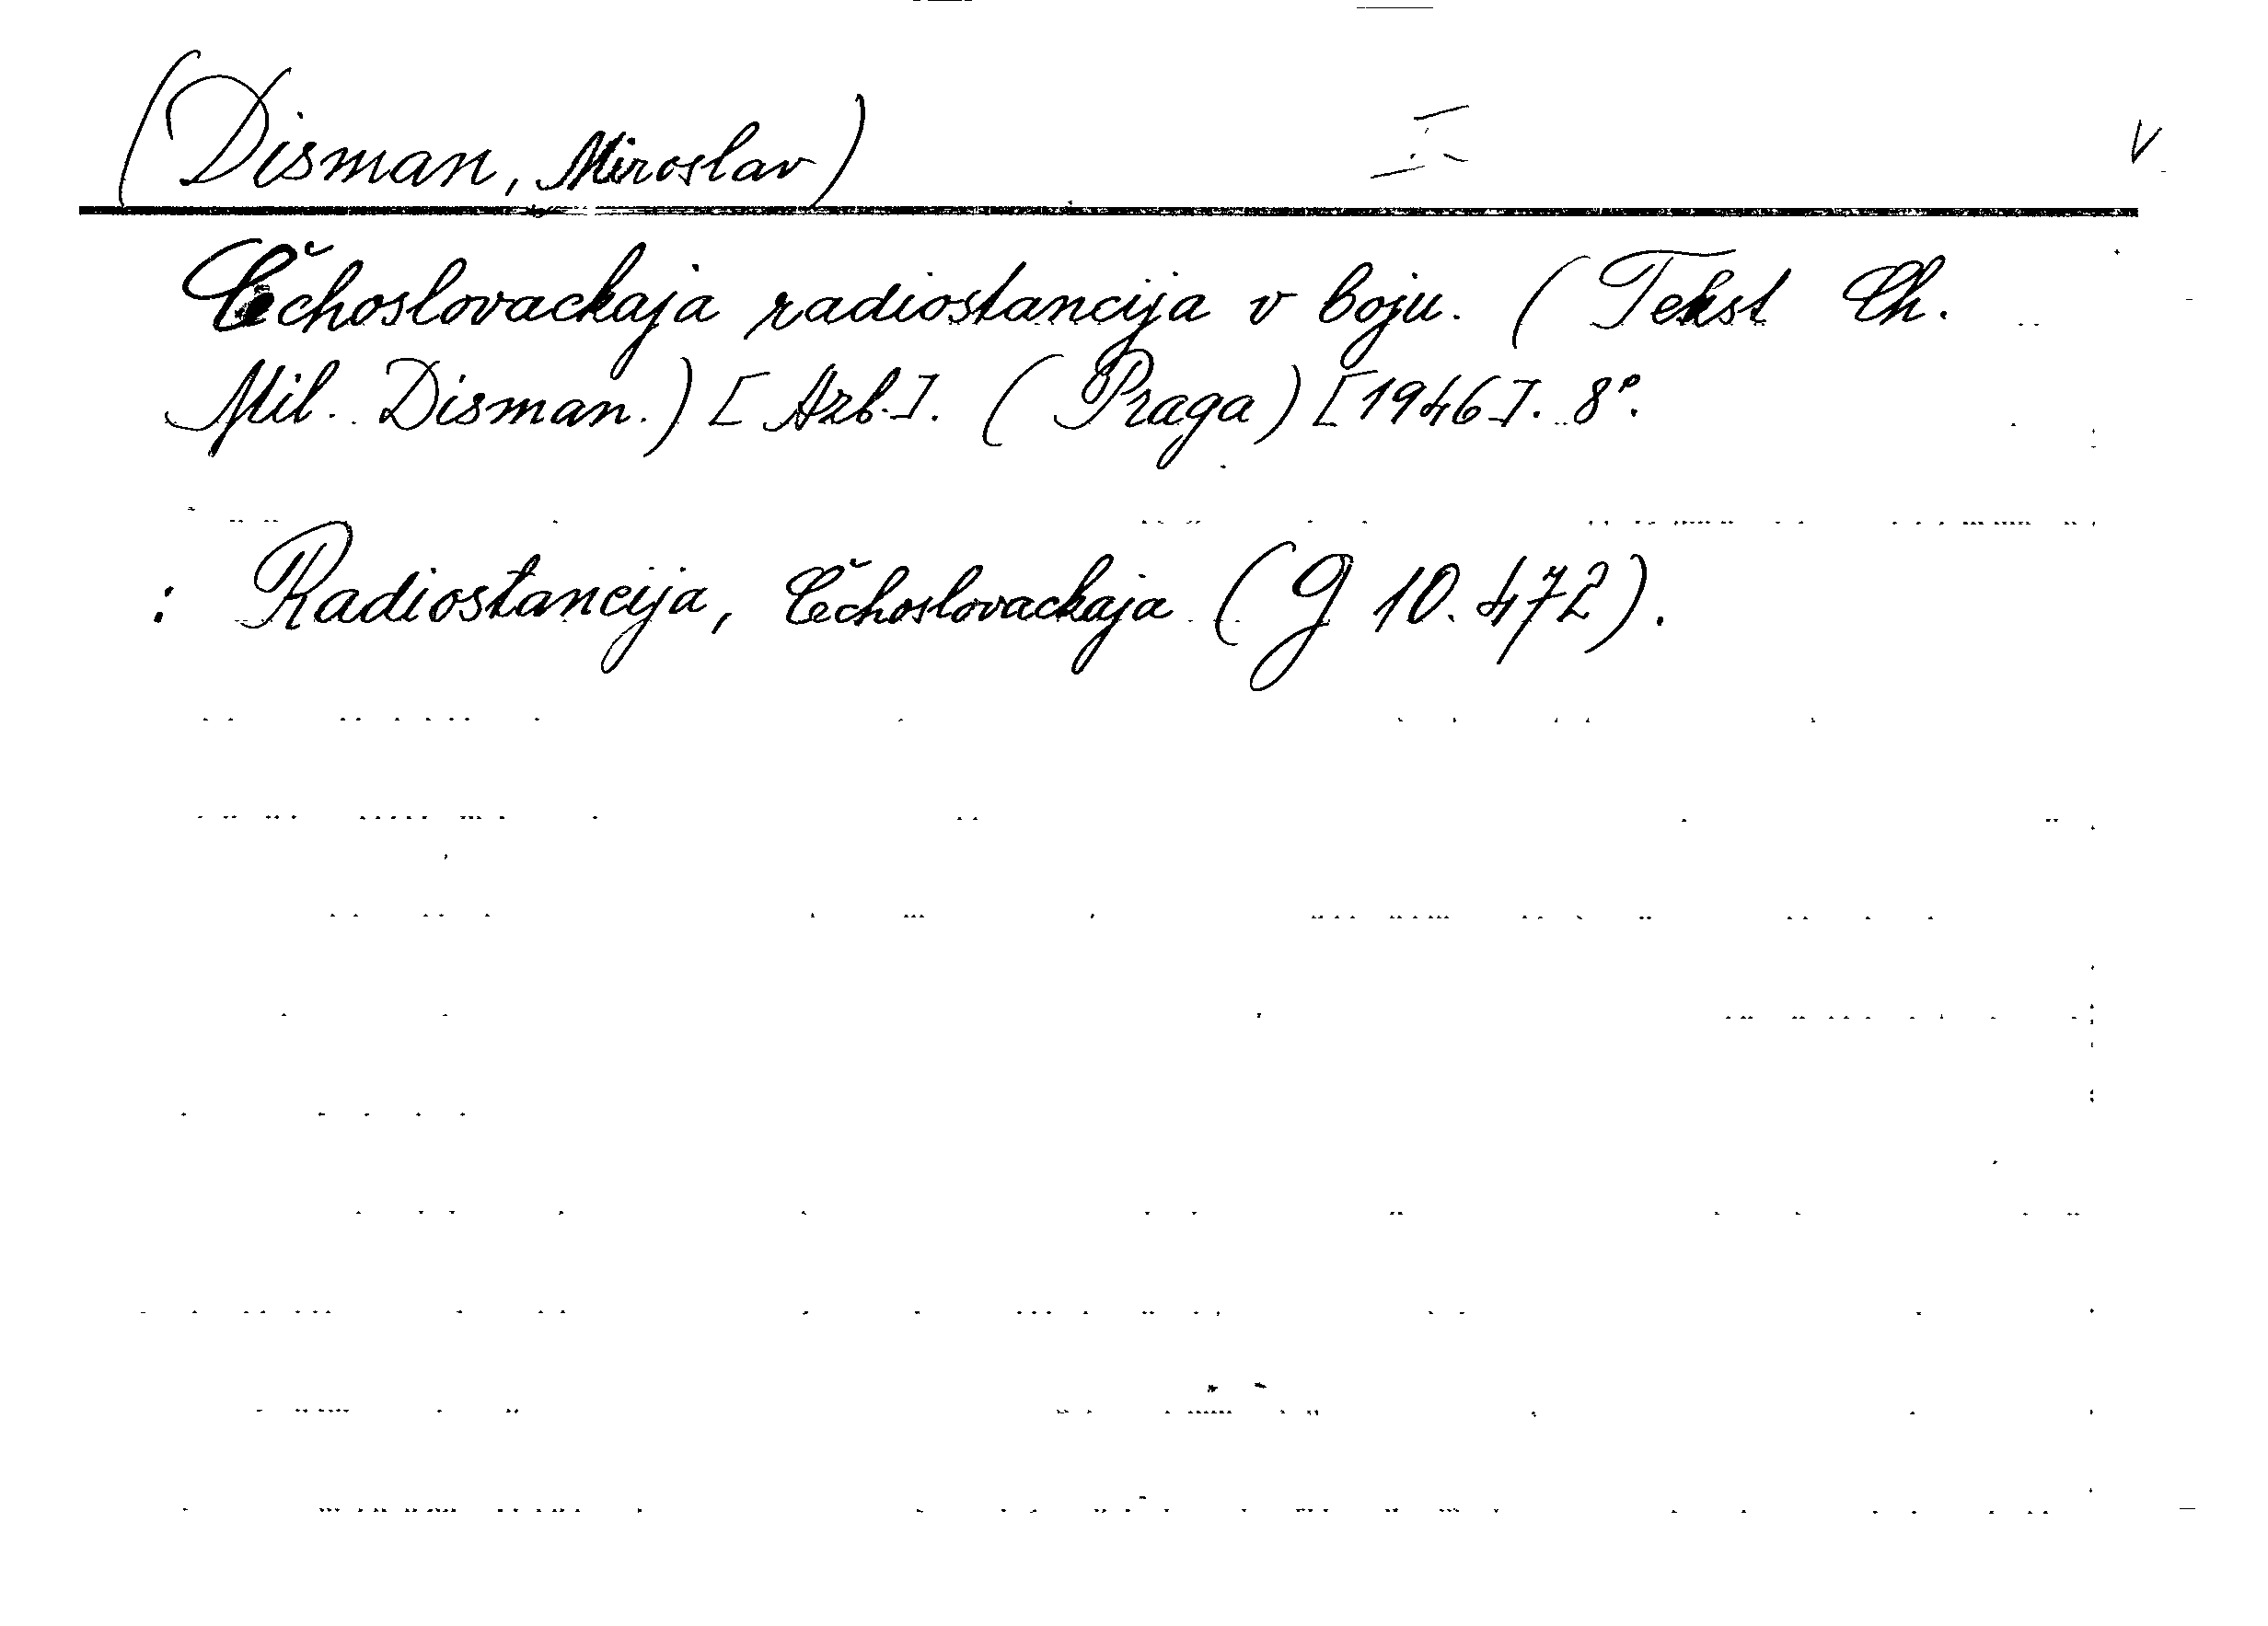 (Disman, Miroslav) I V
Čechoslovackaja radiostancija v boju. (Tekst Ch.
Mil. Disman.) [Azb.]. (Praga) [1946]. 8°.
: Radiostancija, Čechoslovackaja (G 10.472).